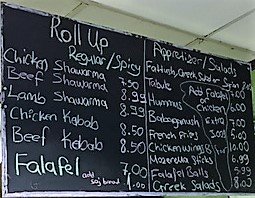 Roll Up
Regular/Spicy
Chicken Shawarma 7.50
Beef Shawarma 8.99
Lamb Shawarma 8.99
Chicken Kabob 8.50
Beef Kebab 8.50
Falafel 7.00
add 1.00
Appetizer/Salads
Fattush, Greek Salad or 7.00
Tabule Add Falafel
Hummus or Chicken 6.00
Babagnush Extra 7.00
French Fries 3.00 5.00
Chicken wings 8 10.00
Mozerella Sticks 6.99
Falafel Balls 5.99
Greek Salads 8.00